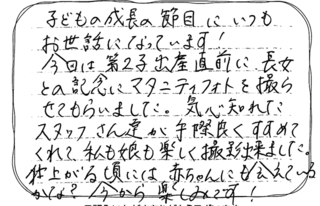 子どもの成長の節目にいつも
お世話になっています！
今回は第2子出産直前に長女
との記念にマタニティフォトを撮ら
せてもらいました。気心知れた
スタッフさん達が手際良くすすめて
くれて、私も娘も楽しく撮影出来ました。
仕上がる頃には赤ちゃんにも会えている
かな？今から楽しみです！